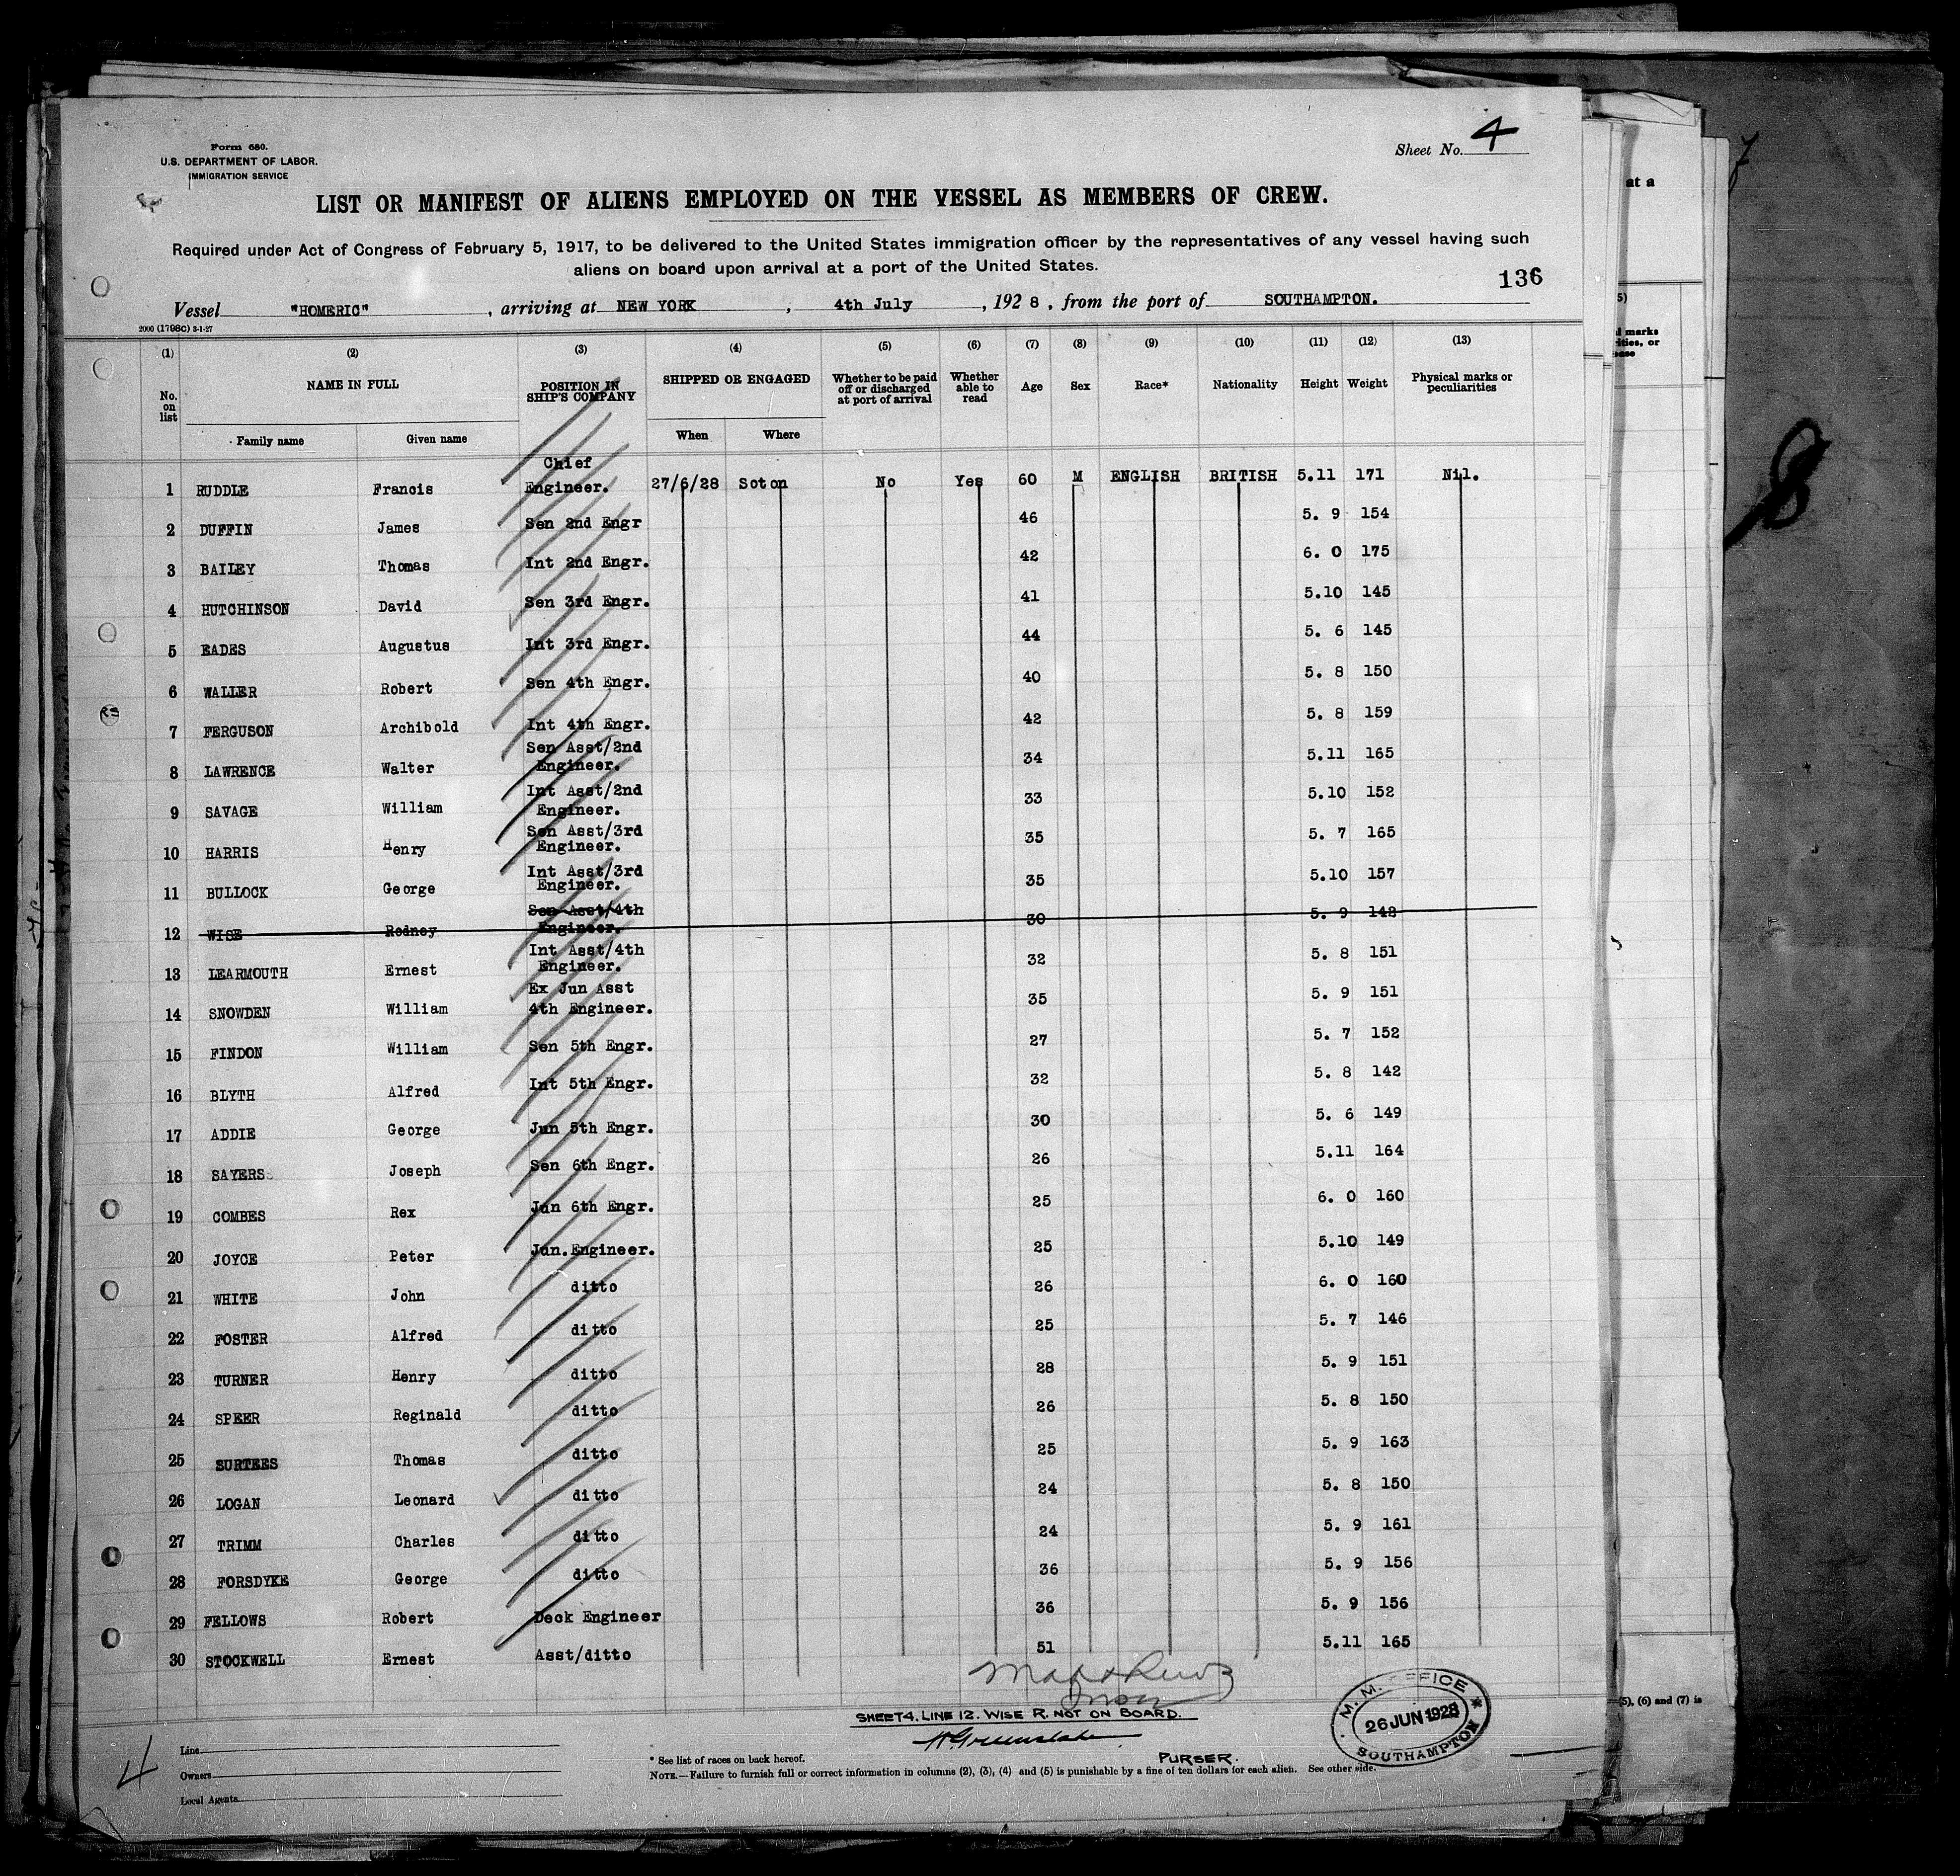 Form 680.
U.S. DEPARTMENT OF LABOR.
IMMIGRATION SERVICE
Sheet No. 4
LIST OR MANIFEST OF ALIENS EMPLOYED ON THE VESSEL AS MEMBERS OF CREW.
Required under Act of Congress of February 5, 1917, to be delivered to the United States immigration officer by the representatives of any vessel having such
aliens on board upon arrival at a port of the United States.
136
Vessel "HOMERIC", arriving at NEW YORK, 4th July, 1928, from the port of SOUTHAMPTON.
2000 (1798C) 8-1-27
(1) (2) (3) (4) (5) (6) (7) (8) (9) (10) (11) (12) (13)
No. on list NAME IN FULL POSITION IN SHIP'S COMPANY SHIPPED OR ENGAGED Whether to be paid off or discharged at port of arrival Whether able to read Age Sex Race* Nationality Height Weight Physical marks or peculiarities
Family name Given name When Where
1 RUDDLE Francis Chief Engineer. 27/6/28 Soton No Yes 60 M ENGLISH BRITISH 5.11 171 Nil.
2 DUFFIN James Sen 2nd Engr 46 5. 9 154
3 BAILEY Thomas Int 2nd Engr. 42 6. 0 175
4 HUTCHINSON David Sen 3rd Engr. 41 5.10 145
5 EADES Augustus Int 3rd Engr. 44 5. 6 145
6 WALLER Robert Sen 4th Engr. 40 5. 8 150
7 FERGUSON Archibold Int 4th Engr. 42 5. 8 159
8 LAWRENCE Walter Sen Asst/2nd Engineer. 34 5.11 165
9 SAVAGE William Int Asst/2nd Engineer. 33 5.10 152
10 HARRIS Henry Sen Asst/3rd Engineer. 35 5. 7 165
11 BULLOCK George Int Asst/3rd Engineer. 35 5.10 157
12 WISE Rodney Sen Asst/4th Engineer. 30 5. 9 148
13 LEARMOUTH Ernest Int Asst/4th Engineer. 32 5. 8 151
14 SNOWDEN William Ex Jun Asst 4th Engineer. 35 5. 9 151
15 FINDON William Sen 5th Engr. 27 5. 7 152
16 BLYTH Alfred Int 5th Engr. 32 5. 8 142
17 ADDIE George Jun 5th Engr. 30 5. 6 149
18 SAYERS Joseph Sen 6th Engr. 26 5.11 164
19 COMBES Rex Jun 6th Engr. 25 6. 0 160
20 JOYCE Peter Jun.Engineer. 25 5.10 149
21 WHITE John ditto 26 6. 0 160
22 FOSTER Alfred ditto 25 5. 7 146
23 TURNER Henry ditto 28 5. 9 151
24 SPEER Reginald ditto 26 5. 8 150
25 SURTEES Thomas ditto 25 5. 9 163
26 LOGAN Leonard ditto 24 5. 8 150
27 TRIMM Charles ditto 24 5. 9 161
28 FORSDYKE George ditto 36 5. 9 156
29 FELLOWS Robert Deck Engineer 36 5. 9 156
30 STOCKWELL Ernest Asst/ditto 51 5.11 165
SHEET 4. LINE 12. WISE R. NOT ON BOARD.
PURSER.
M. M. OFFICE
26 JUN 1928
SOUTHAMPTON
4
Line
Owners
Local Agents
* See list of races on back hereof.
NOTE.—Failure to furnish full or correct information in columns (2), (3), (4) and (5) is punishable by a fine of ten dollars for each alien. See other side.
at a
(5), (6) and (7) is